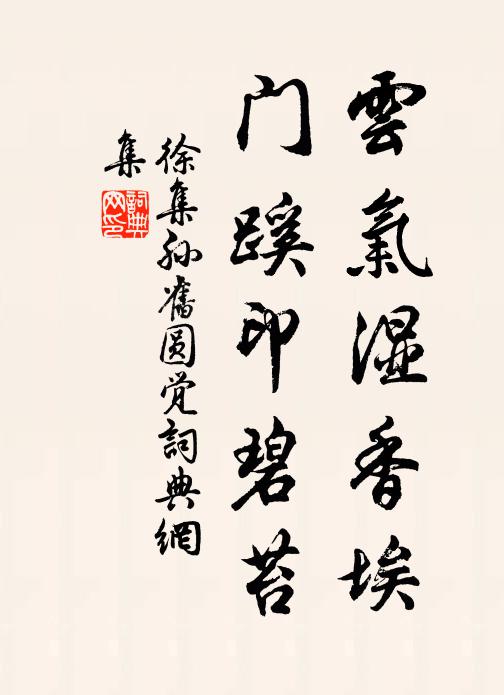 雲氣湿香埃
门蹊印碧苔
徐集孙舊圆觉詞典網
集
詞典網印